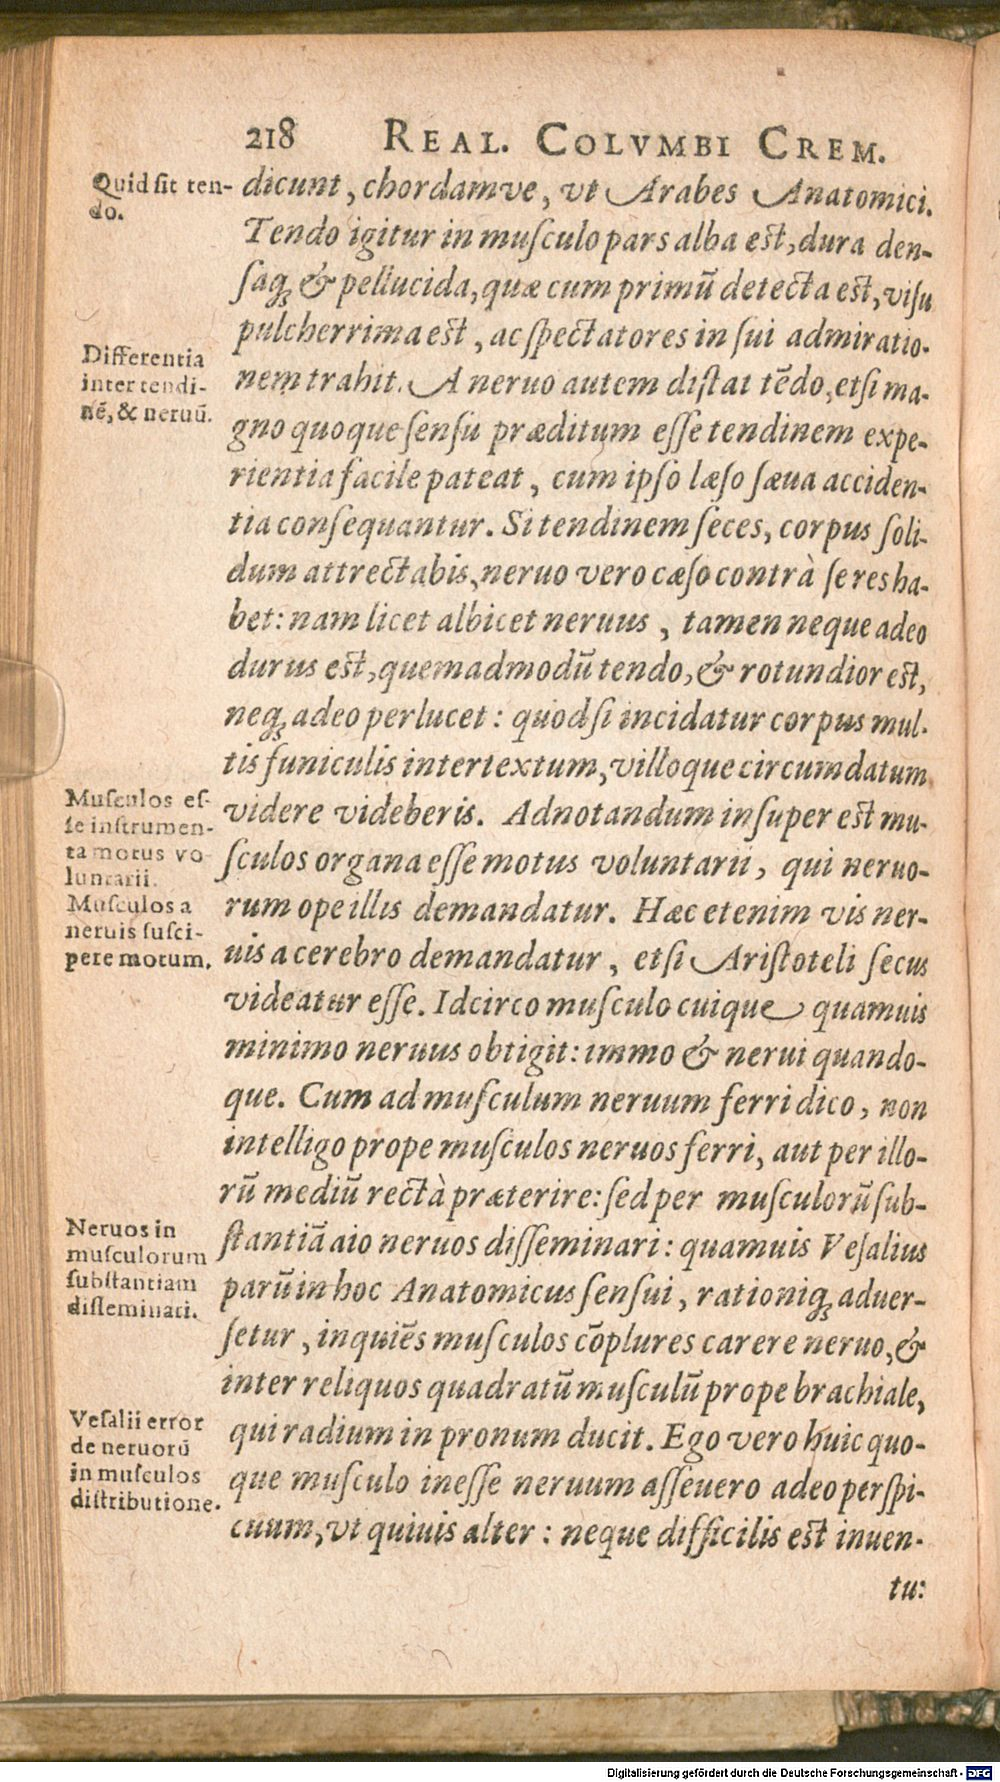 218 REAL. COLVMBI CREM.
Quid sit ten-
do.
dicunt, chordamve, vt Arabes Anatomici.
Tendo igitur in muſculo pars alba eſt, dura den-
ſaq́ꝫ & pellucida, quæ cum primũ detecta eſt, viſu
pulcherrima eſt, ac ſpectatores in ſui admiratio-
Differentia
inter tendi-
nẽ, & neruũ.
nem trahit. A neruo autem diſtat tẽdo, etſi ma-
gno quoque ſenſu præditum eſſe tendinem expe-
rientia facile pateat, cum ipſo læſo ſæua acciden-
tia conſequantur. Si tendinem ſeces, corpus ſoli-
dum attrectabis, neruo vero cæſo contrà ſe res ha-
bet: nam licet albicet neruus, tamen neque adeo
durus eſt, quemadmodũ tendo, & rotundior eſt,
neq́ꝫ adeo perlucet: quod ſi incidatur corpus mul-
tis funiculis intertextum, villoque circumdatum
Muſculos eſ-
ſe inſtrumen-
ta motus vo-
luntarii.
videre videberis. Adnotandum inſuper eſt mu-
ſculos organa eſſe motus voluntarii, qui neruo-
Muſculos a
neruis ſuſci-
pere motum.
rum ope illis demandatur. Hæc etenim vis ner-
uis a cerebro demandatur, etſi Ariſtoteli ſecus
videatur eſſe. Idcirco muſculo cuique quamuis
minimo neruus obtigit: immo & nerui quando-
que. Cum ad muſculum neruum ferri dico, non
intelligo prope muſculos neruos ferri, aut per illo-
rũ mediũ rectà præterire: ſed per muſculorũ ſub-
Neruos in
muſculorum
ſubſtantiam
diſſeminari.
ſtantiã aio neruos diſſeminari: quamuis Veſalius
parũ in hoc Anatomicus ſenſui, rationiq́ꝫ aduer-
ſetur, inquiẽs muſculos cõplures carere neruo, &
inter reliquos quadratũ muſculũ prope brachiale,
Veſalii error
de neruorũ
in muſculos
diſtributione.
qui radium in pronum ducit. Ego vero huic quo-
que muſculo ineſſe neruum aſſeuero adeo perſpi-
cuum, vt quiuis alter: neque difficilis eſt inuen-
tu:
Digitalisierung gefördert durch die Deutsche Forschungsgemeinschaft - DFG